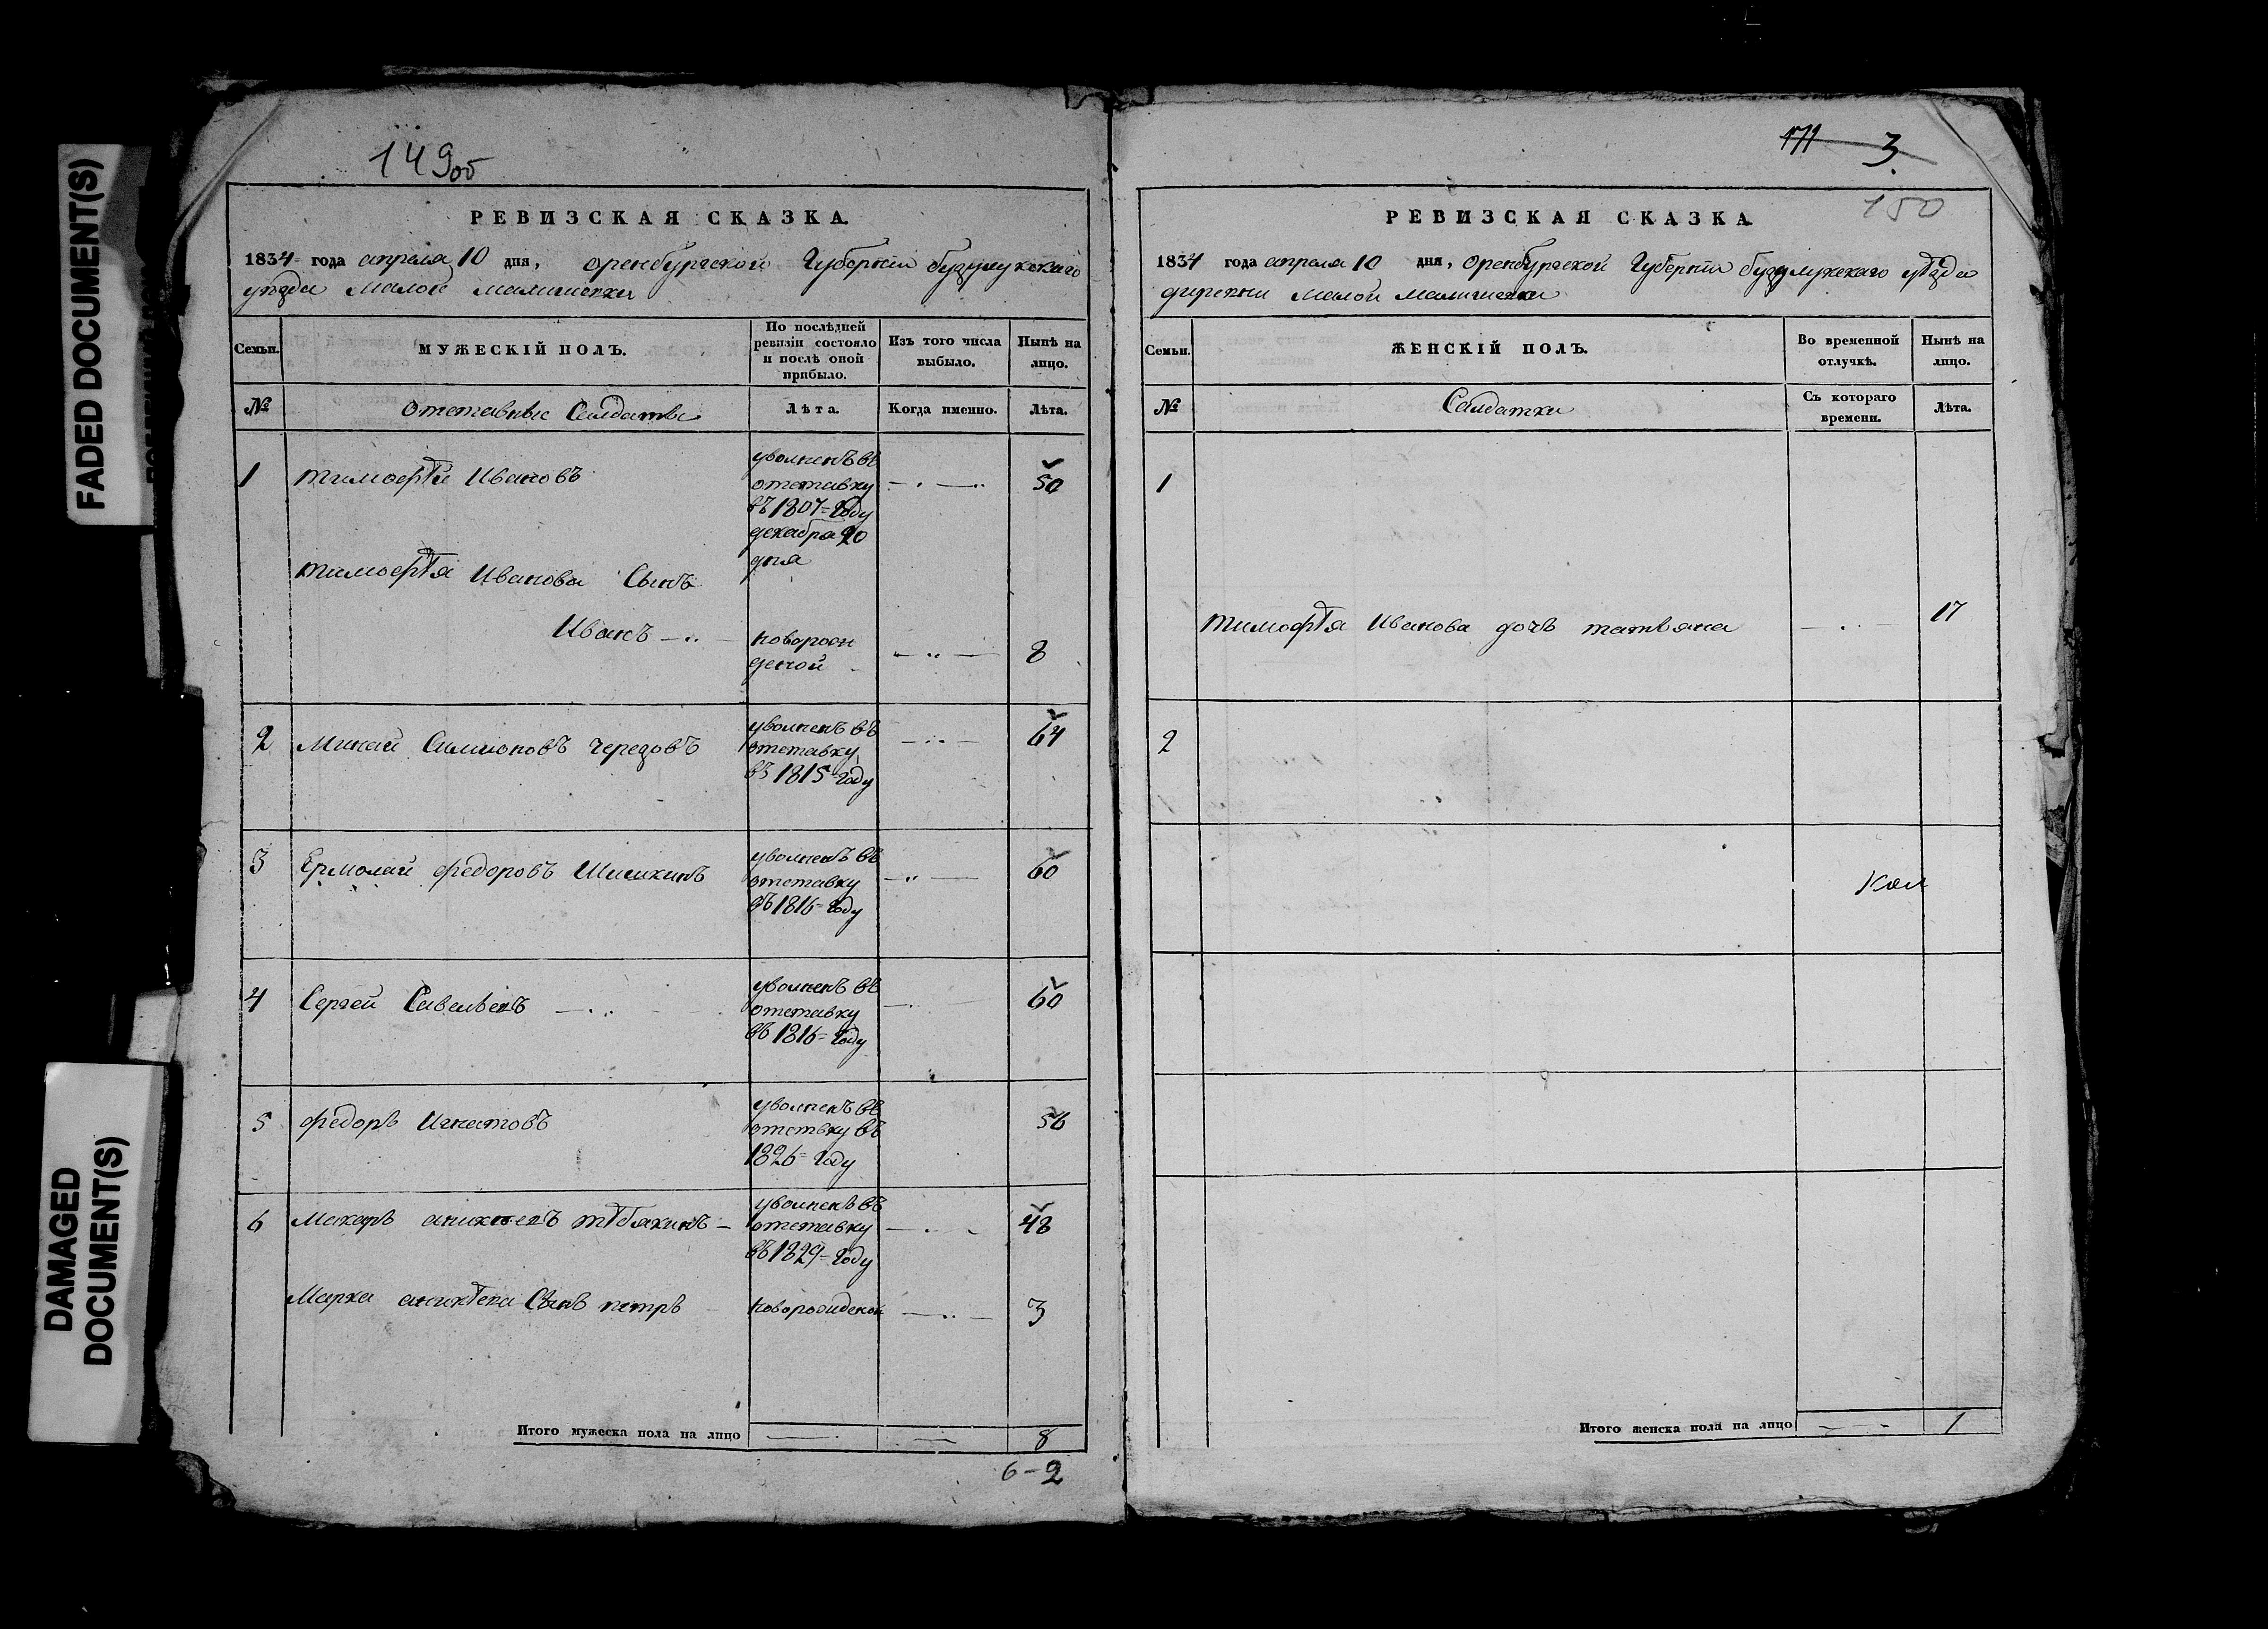 FADED DOCUMENT(S)
DAMAGED
DOCUMENT(S)
149об
РЕВИЗСКАЯ СКАЗКА.
1834 года апреля 10 дня, оренбургской Губернiи бузулукскаго
уезда Малой малышевки
Семьи.
МУЖЕСКIЙ ПОЛЪ.
По послѣдней
ревизiи состояло
и послѣ оной
прибыло.
Изъ того числа
выбыло.
Нынѣ на
лицо.
№
отставные Салдаты
Лѣта.
Когда именно.
Лѣта.
1 тимофѣй Ивановъ
уволненъ въ
отставку
въ 1807 = Году
декабря 20
дня
50
тимофѣя Иванова Сынъ
Иванъ
Новорож
деной
8
2 Минай Симионовъ Чередовъ
уволненъ въ
отставку
въ 1815 = Году
64
3 Ермолай федоровъ Шишкинъ
уволненъ въ
отставку
въ 1816 = Году
60
4 Сергей Савельевъ
уволненъ въ
отставку
въ 1816 = Году
60
5 федоръ Игнатовъ
уволненъ въ
отставку въ
1826 = Году
56
6 Макаръ
уволненъ въ
отставку
въ 1829 = Году
48
Сынъ петръ
Новорожденой
3
Итого мужеска пола на лицо
8
6 - 2
171 3
150
РЕВИЗСКАЯ СКАЗКА
1834 года апреля 10 дня, оренбургской Губернiи бузулукскаго уѣзда
диревни малой малышевки
Семьи.
ЖЕНСКIЙ ПОЛЪ.
Во временной
отлучкѣ.
Нынѣ на
лицо.
№
Салдатки
Съ котораго
времени.
Лѣта.
1
тимофѣя Иванова дочь татьяна
17
2
Итого женска пола на лицо
1